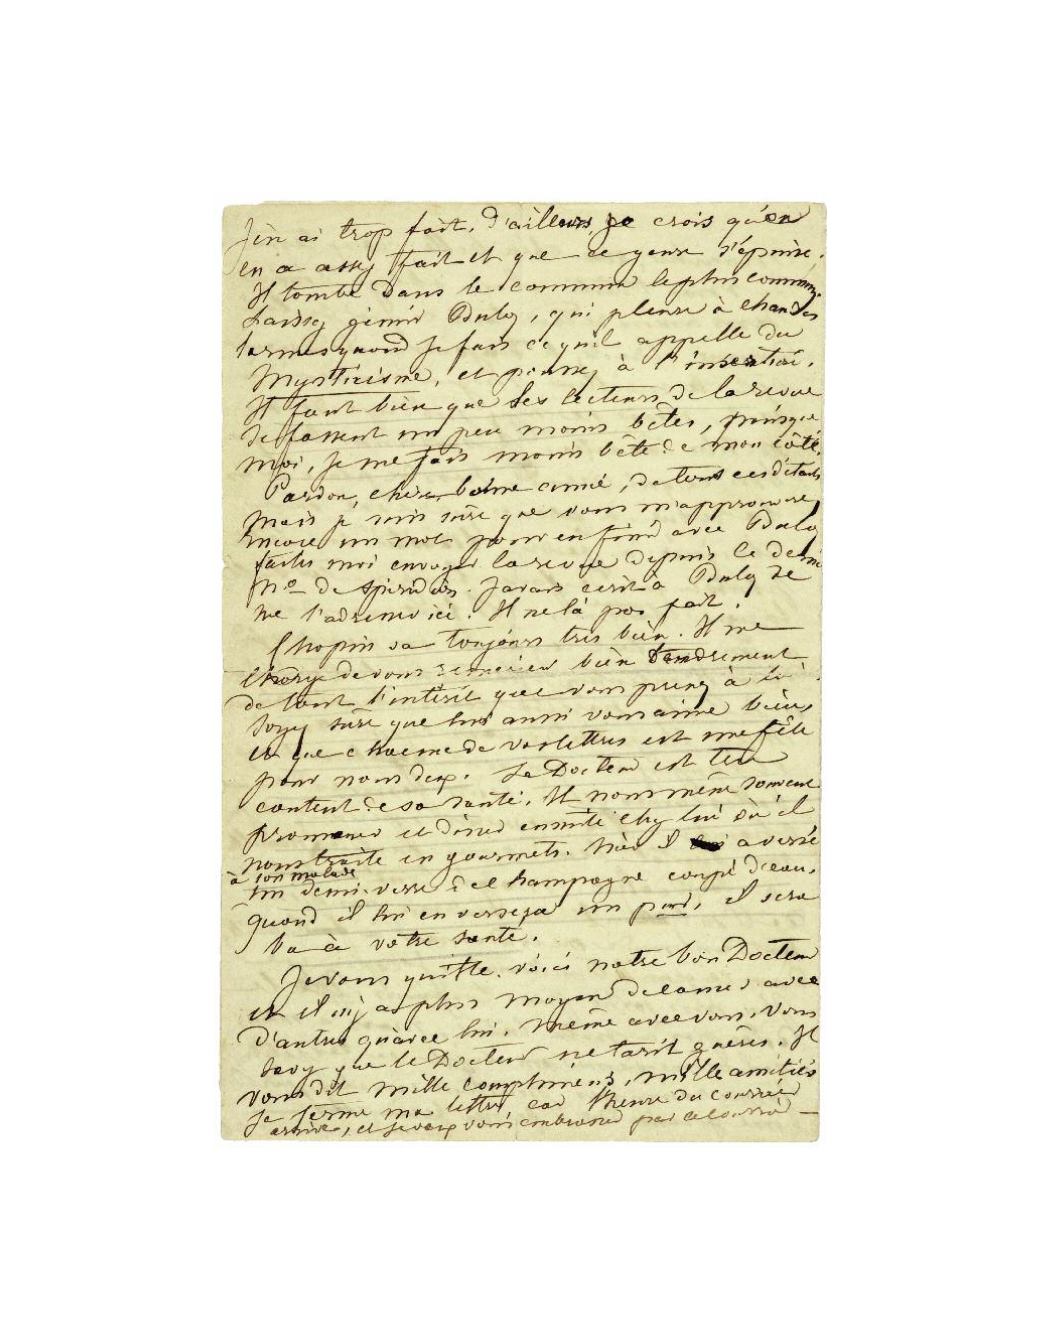 J'en ai trop fait. D'ailleurs, je crois qu'on
en a assez fait et que ce genre s'épuise.
Il tombe dans le commun le plus commun,
Laissez gémir Buloz, qui pleure à chaudes
larmes quand je fais ce qu'il appelle du
Mysticisme, et pensez à l'insertion.
Il faut bien que les lecteurs de la revue
se fassent un peu moins bêtes, puisque
moi, je me fais moins bête de mon côté.
Pardon, chère bonne amie, de tous ces détails
mais je suis sûre que vous m'approuverez
Encore un mot pour en finir avec Buloz
faites moi envoyer la revue depuis le dernier
No de Spiridion. J'avais écrit à Buloz de
me l'adresser ici. Il ne l'a pas fait.
Chopin va toujours très bien. Il me
charge de vous remercier bien tendrement
de tout l'intérêt que vous prenez à lui.
Soyez sûre que lui aussi vous aime bien,
et que chacune de vos lettres est une fête
pour nous deux. Le Docteur est très
content de sa santé. Il nous mène souvent
promener et dîner ensuite chez lui où il
nous traite en gourmets. Hier il a versé
à son malade
un demi-verre de champagne coupé d'eau,
quand il lui en versera un pur, il sera
bu à votre santé.
Je vous quitte. voici notre bon Docteur
et il n'y a plus moyen de causer avec
d'autres qu'avec lui. Même avec vous. Vous
savez que le Docteur ne tarit guères. Il
vous dit mille complimens, mille amitiés
Je ferme ma lettre car l'heure du courrier
arrive, et je veux vous embrasser par ce courrier —